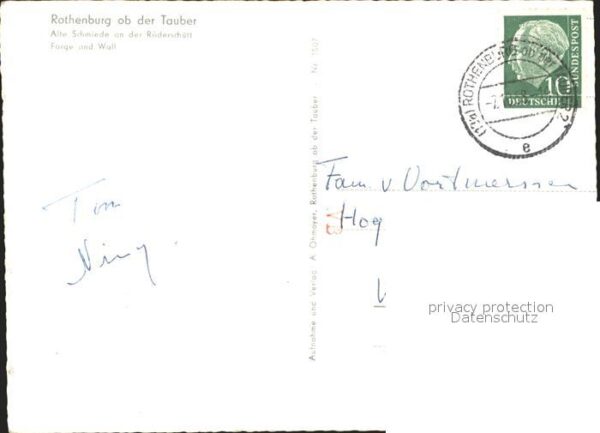 Rothenburg ob der Tauber
Alte Schmiede an der Röderschütt
Forge and Wall
Aufnahme und Verlag: A. Ohmayer, Rothenburg ob der Tauber
10
DEUTSCHE
BUNDESPOST
(13a) ROTHENBURG OB DER
e
Fam. v. Oortmerssen
Hog
Tom
privacy protection
Datenschutz